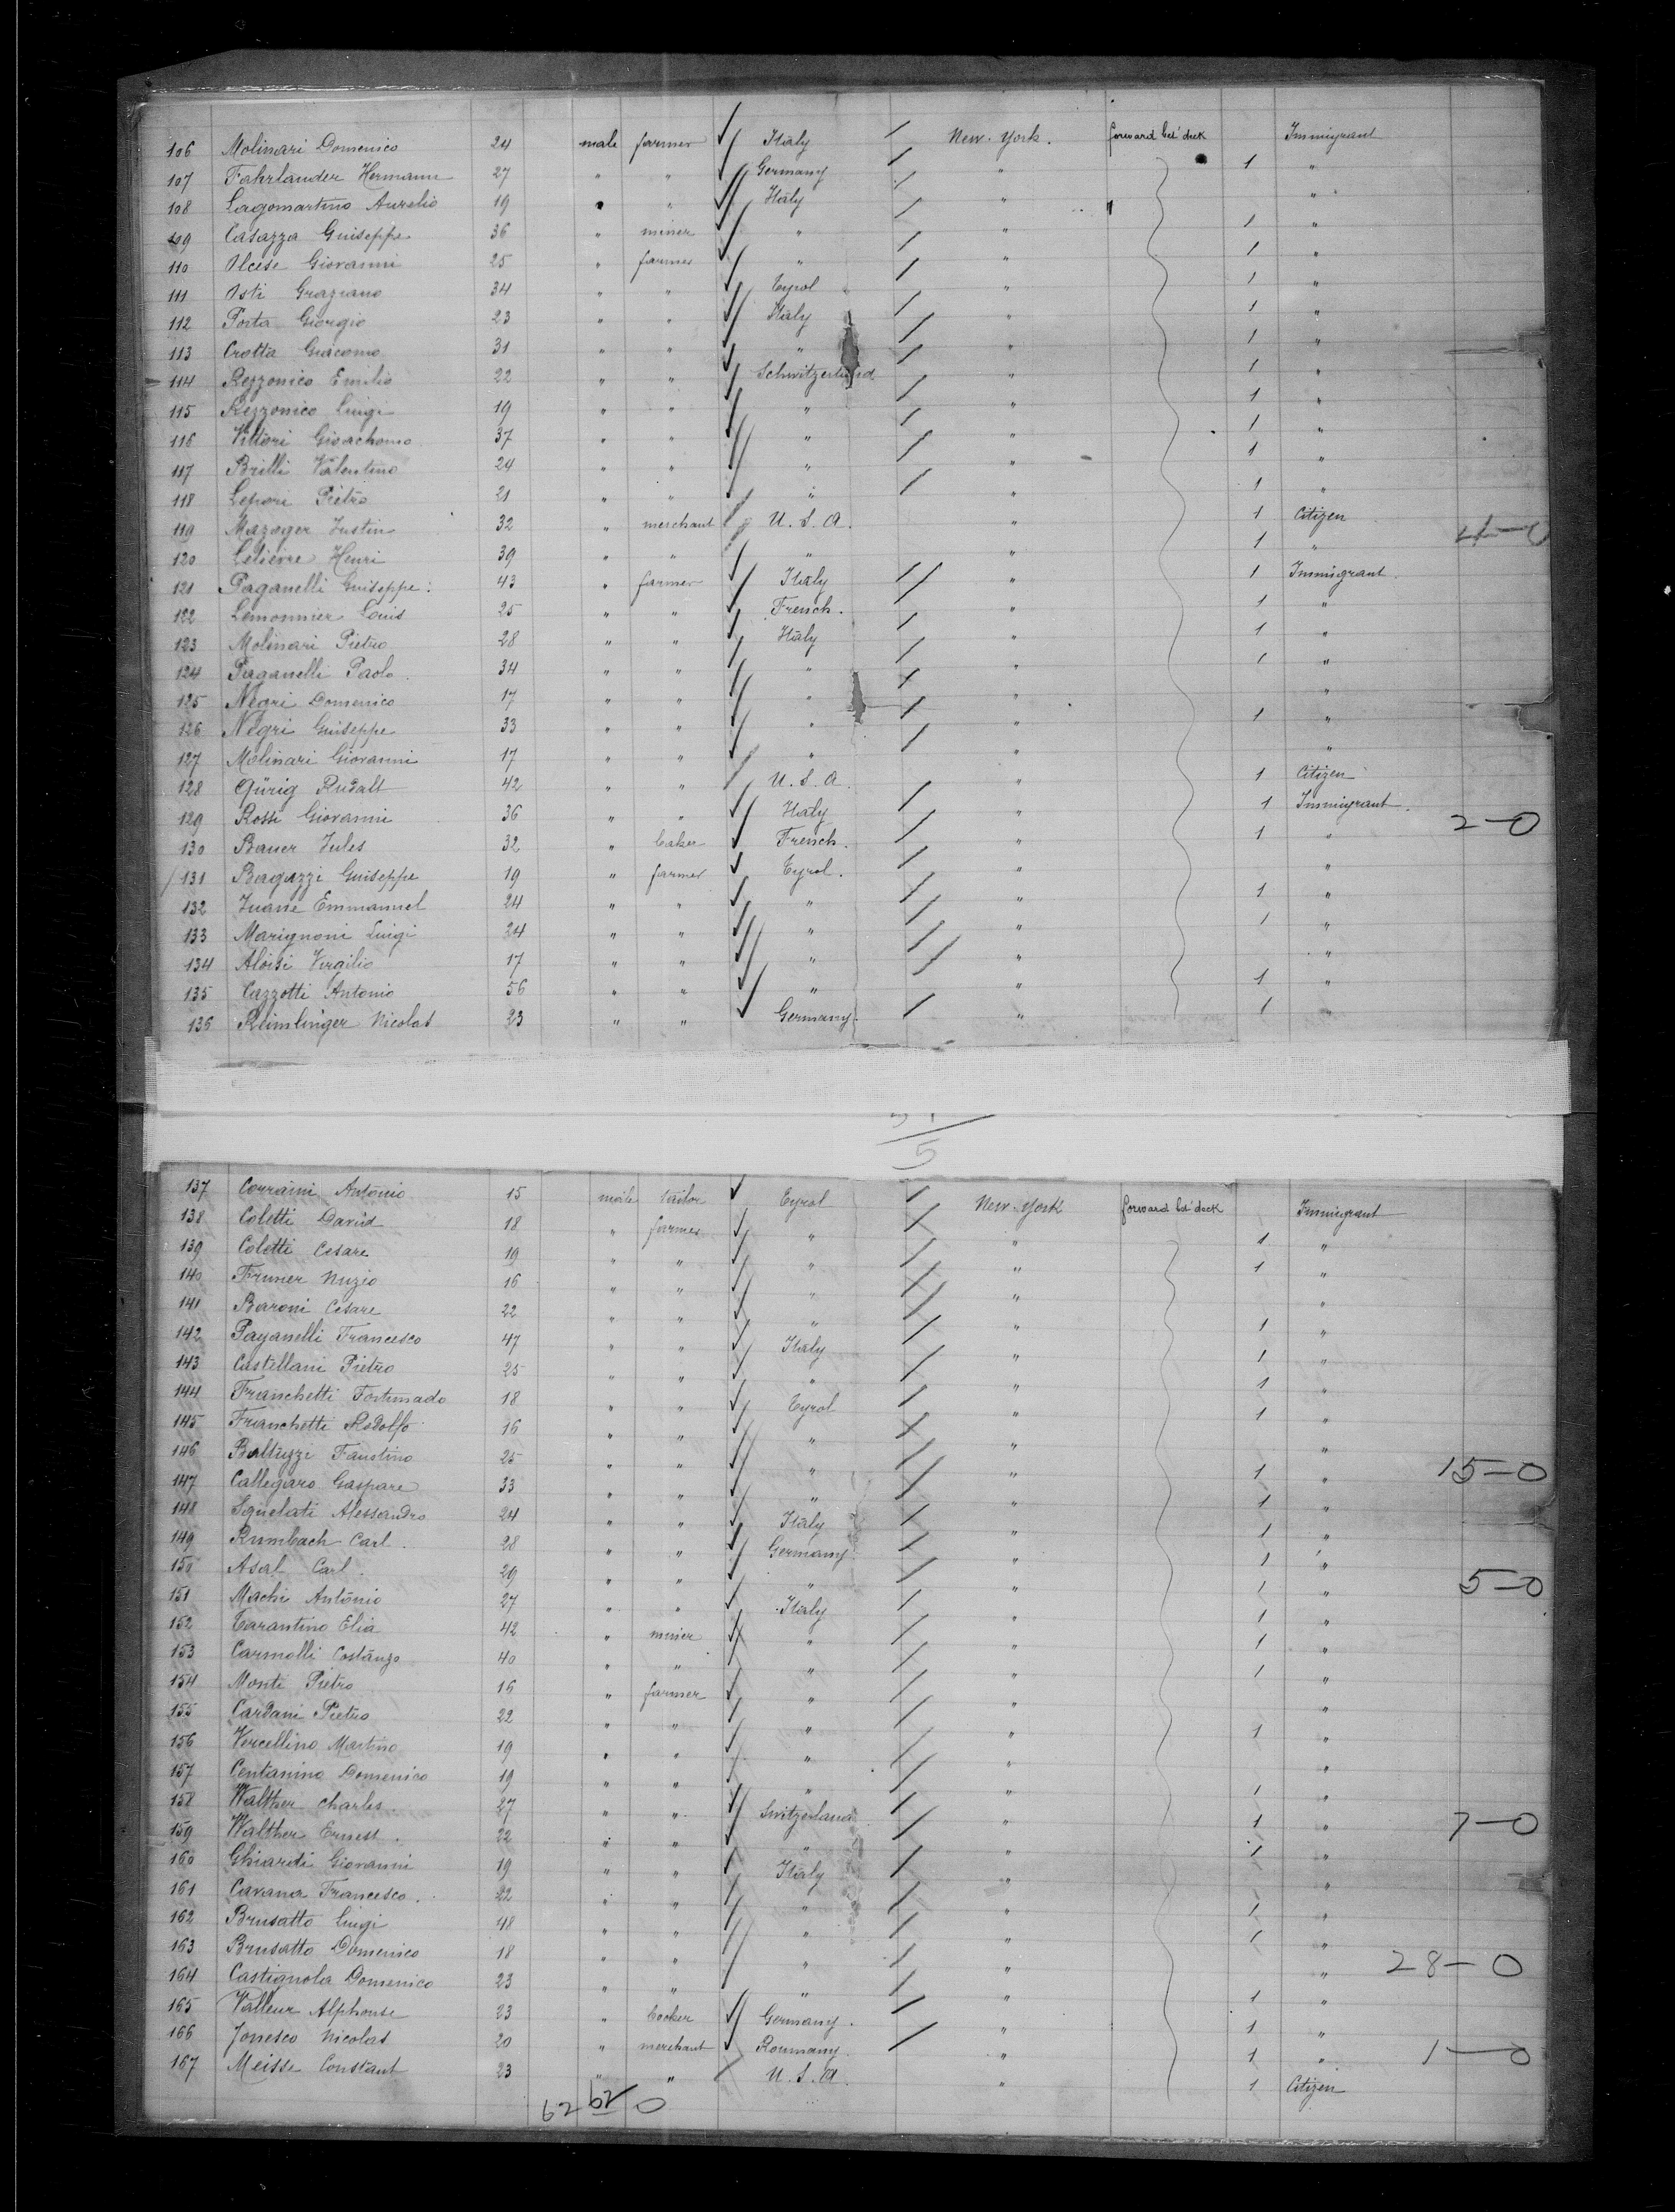 106 Molinari Domenico 24 male farmer Italy New-York. forward bet' deck Immigrant
107 Fahrlander Hermann 27 " " Germany " 1 "
108 Lagomartino Aurelio 19 " " Italy " "
109 Casazza Guiseppe 36 " miner " " 1 "
110 Olcese Giovanni 25 " farmer " " 1 "
111 Osti Graziano 34 " " Tyrol " 1 "
112 Porta Giorgio 23 " " Italy " 1 "
113 Crotta Giacomo 31 " " " " 1 "
114 Rezzonico Emilio 22 " " Schwitzerland " 1 "
115 Rezzonico Luigi 19 " " " " 1 "
116 Vittori Gioachomo 37 " " " " 1 "
117 Brilli Valentino 24 " " " " 1 "
118 Lepori Pietro 21 " " " " 1 "
119 Mazoyer Justin 32 " merchant U. S. A. " 1 Citizen
120 Lelièvre Henri 39 " " " " 1 "
121 Paganelli Guiseppe 43 " farmer Italy " 1 Immigrant
122 Lemonnier Louis 25 " " French. " 1 "
123 Molinari Pietro 28 " " Italy " 1 "
124 Paganelli Paolo 34 " " " " 1 "
125 Negri Domenico 17 " " " " "
126 Negri Guiseppe 33 " " " " 1 "
127 Molinari Giovanni 17 " " " " "
128 42 " " U. S. A. " 1 Citizen
129 Rossi Giovanni 36 " " Italy " 1 Immigrant. 2-0
130 Bauer Jules 32 " baker French. " 1 "
131 Bagozzi Guiseppe 19 " farmer Tyrol. " "
132 Emmanuel 24 " " " " 1 "
133 Marignoni Luigi 24 " " " " 1 "
134 Aloisi Virgilio 17 " " " " "
135 Cazzotti Antonio 56 " " " " 1 "
136 Reimlinger Nicolas 23 " " Germany. " 1 "
137 Corraini Antonio 15 male tailor Tyrol New-York forward bet' deck Immigrant
138 Coletti David 18 " farmer " " 1 "
139 Coletti Cesare 19 " " " " 1 "
140 Nuzio 16 " " " " "
141 Baroni Cesare 22 " " " " 1 "
142 Paganelli Francesco 47 " " Italy " 1 "
143 Castellani Pietro 25 " " " " 1 "
144 Franchetti Fortunado 18 " " Tyrol " 1 "
145 Franchetti Rodolfo 16 " " " " "
146 Baltuzzi Faustino 25 " " " " 1 " 15-0
147 Callegaro Gaspare 33 " " " " 1 "
148 Squelati Alessandro 24 " " Italy " 1 "
149 Rumbach Carl 28 " " Germany " 1 "
150 Asal Carl. 29 " " " " 1 " 5-0
151 Machi Antonio 27 " " Italy " 1 "
152 Tarantino Elia 42 " miner " " 1 "
153 Carmolli Costanzo 40 " " " " 1 "
154 Monti Pietro 16 " farmer " " "
155 Cardani Pietro 22 " " " " 1 "
156 Vercellino Martino 19 " " " " "
157 Centanino Domenico 19 " " " " 1 "
158 Walther Charles. 27 " " Switzerland " 1 " 7-0
159 Walther Ernest. 22 " " " " 1 "
160 Ghiardi Giovanni 19 " " Italy " "
161 Cavana Francesco. 22 " " " " 1 "
162 Brusatto Luigi 48 " " " " 1 "
163 Brusatto Domenico 18 " " " " " 28-0
164 Castignola Domenico 23 " " " " 1 "
165 Valleur Alphonse 23 " Cocker Germany. " 1 "
166 Jonesco Nicolas 20 " merchant Roumany. " 1 " 1-0
167 Meisse Constant 23 " " U. S. A. " 1 Citizen
62 62 0